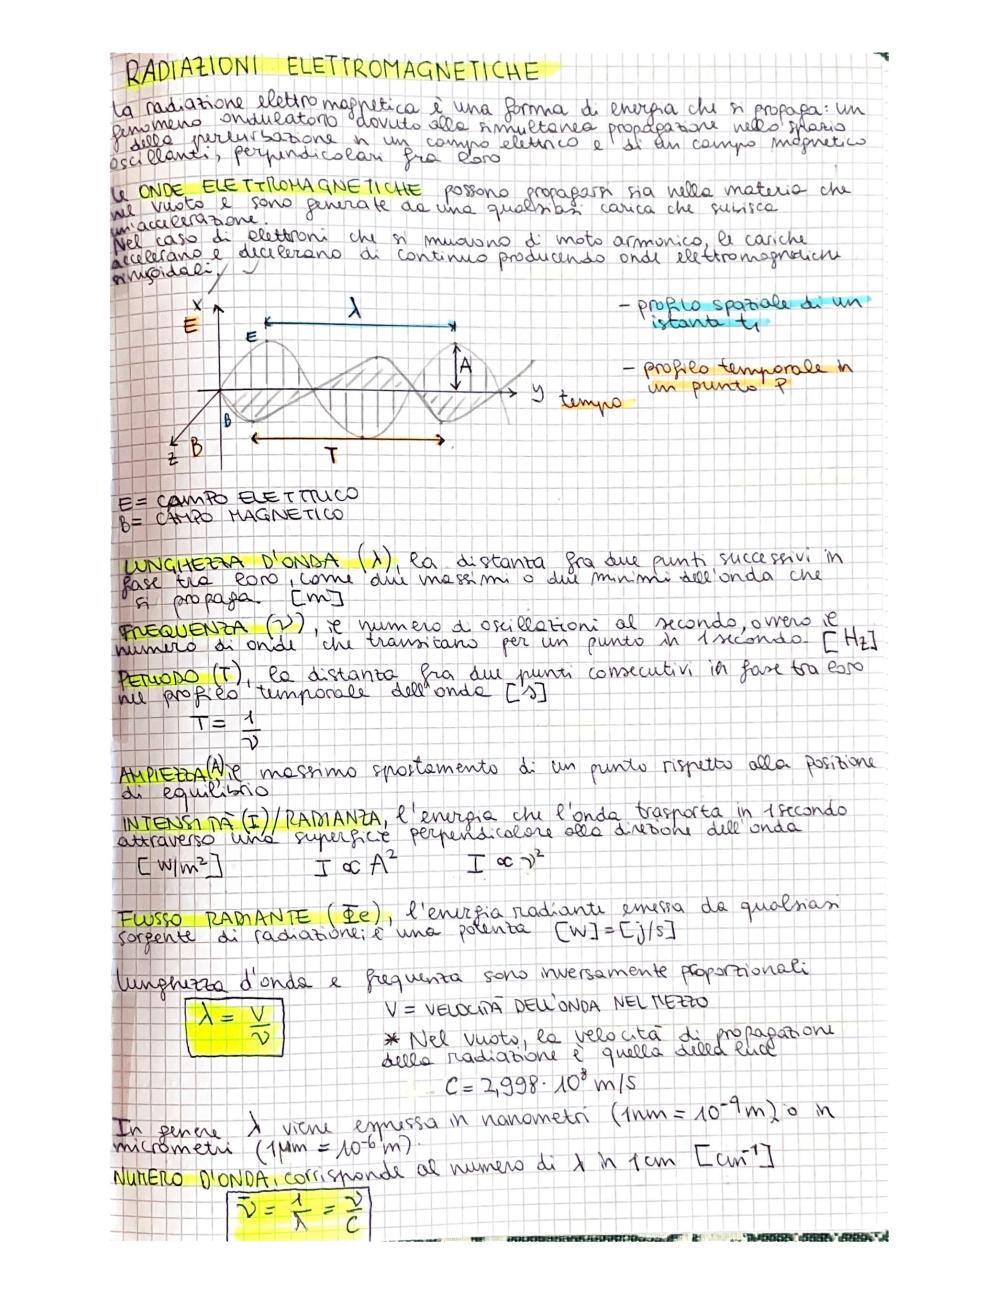 RADIAZIONI ELETTROMAGNETICHE
La radiazione elettromagnetica è una forma di energia che si propaga: un
fenomeno ondulatorio dovuto alla simultanea propagazione nello spazio
della perturbazione di un campo elettrico e di un campo magnetico
oscillanti, perpendicolari fra loro
Le ONDE ELETTROMAGNETICHE possono propagarsi sia nella materia che
nel vuoto e sono generate da una qualsiasi carica che subisca
un'accelerazione.
Nel caso di elettroni che si muovono di moto armonico, le cariche
accelerano e decelerano di continuo producendo onde elettromagnetiche
sinusoidali.
x
E
E
λ
A
B
y
tempo
z
B
T
- profilo spaziale di un
istante t₁
- profilo temporale in
un punto P
E = CAMPO ELETTRICO
B = CAMPO MAGNETICO
LUNGHEZZA D'ONDA (λ), la distanza fra due punti successivi in
fase tra loro, come due massimi o due minimi dell'onda che
si propaga. [m]
FREQUENZA (ν), il numero di oscillazioni al secondo, ovvero il
numero di onde che transitano per un punto in 1 secondo. [Hz]
PERIODO (T), la distanza fra due punti consecutivi in fase tra loro
nel profilo temporale dell'onda [s]
T = 1/ν
AMPIEZZA (A), il massimo spostamento di un punto rispetto alla posizione
di equilibrio
INTENSITÀ (I)/RADIANZA, l'energia che l'onda trasporta in 1 secondo
attraverso una superficie perpendicolare alla direzione dell'onda
[W/m²] I ∝ A² I ∝ ν²
FLUSSO RADIANTE (Φe), l'energia radiante emessa da qualsiasi
sorgente di radiazione; è una potenza [W]=[j/s]
Lunghezza d'onda e frequenza sono inversamente proporzionali
λ = V/ν
V = VELOCITÀ DELL'ONDA NEL MEZZO
* Nel vuoto, la velocità di propagazione
della radiazione è quella della luce
C = 2,998 · 10⁸ m/s
In genere λ viene espressa in nanometri (1nm = 10⁻⁹ m) o in
micrometri (1μm = 10⁻⁶ m).
NUMERO D'ONDA, corrisponde al numero di λ in 1 cm [cm⁻¹]
ν̄ = 1/λ = ν/C